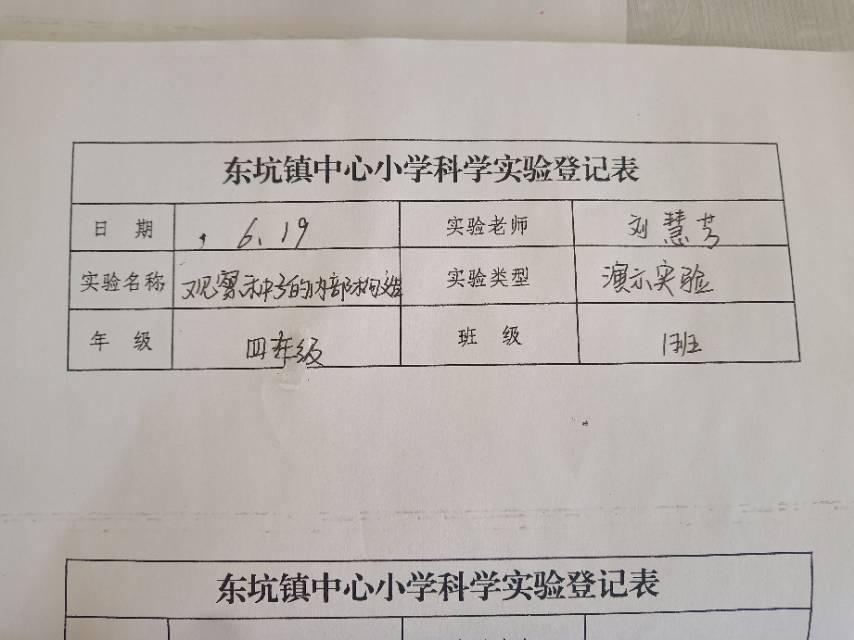 东坑镇中心小学科学实验登记表
日 期 6.19 实验老师 刘慧芳
实验名称 观察种子的内部构造 实验类型 演示实验
年 级 四年级 班 级 1班
东坑镇中心小学科学实验登记表